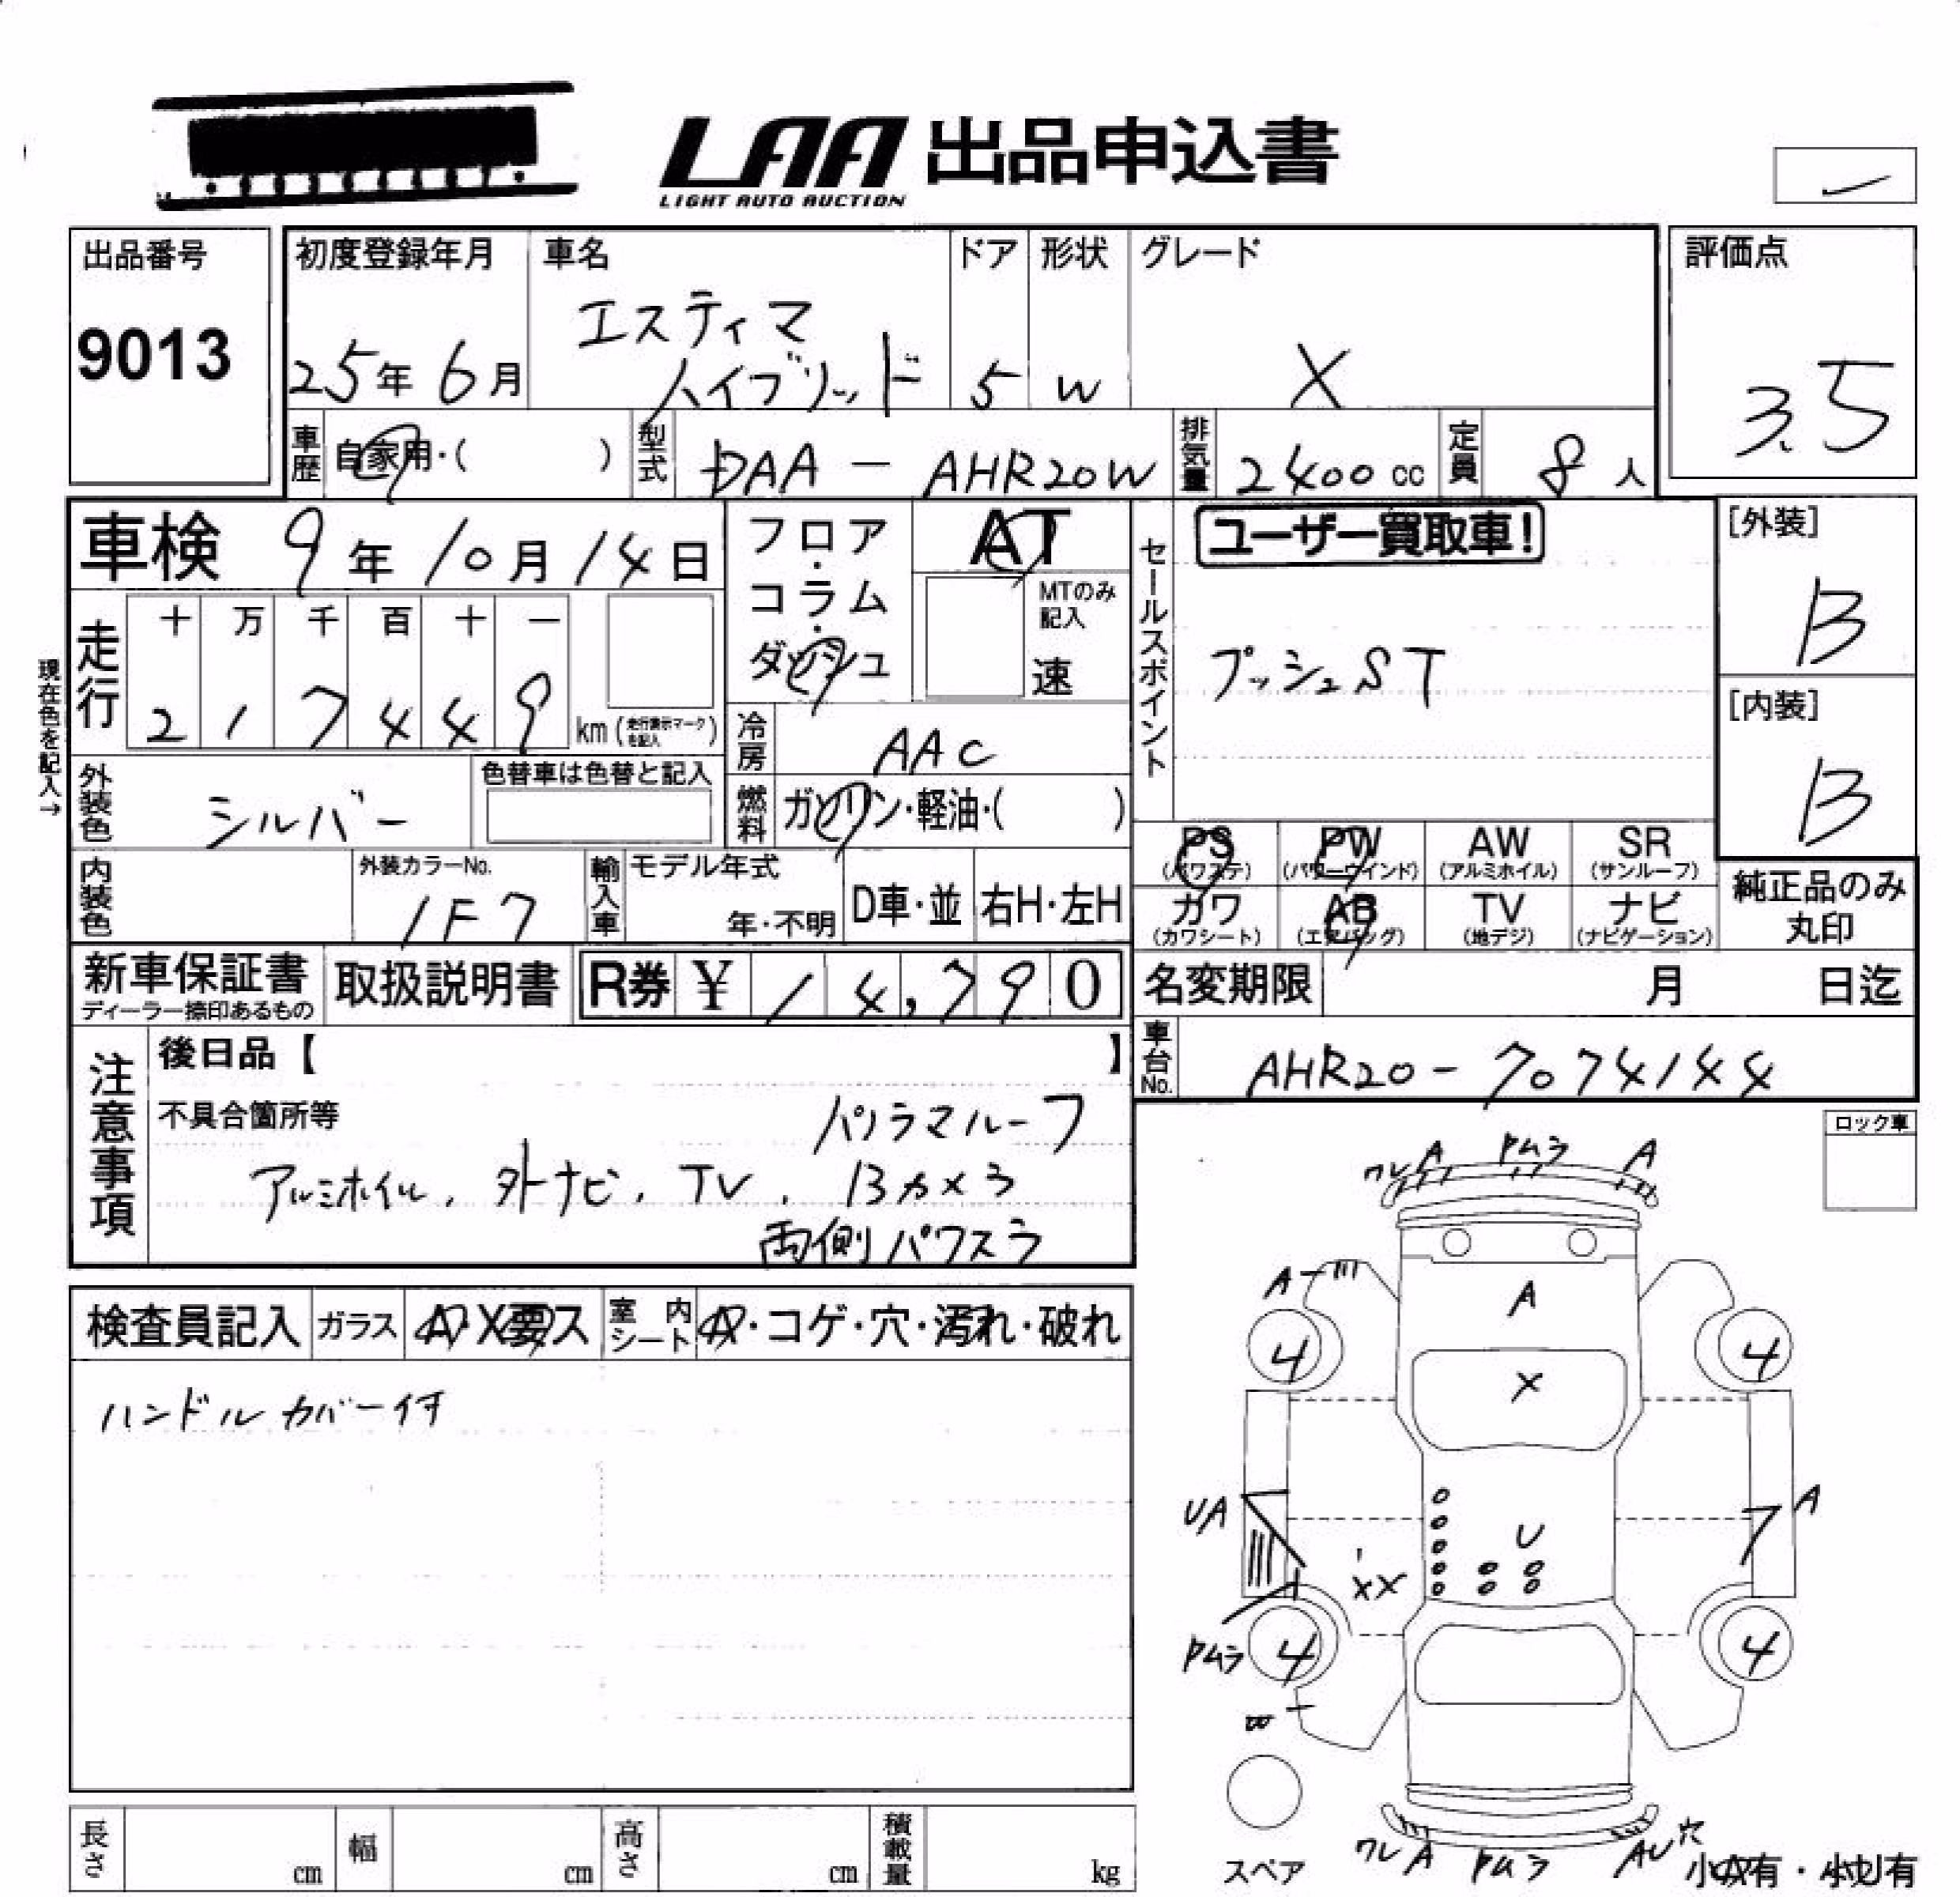 LAA 出品申込書
LIGHT AUTO AUCTION
出品番号
9013
初度登録年月
25年 6月
車名
エスティマ
ハイブリッド
ドア
5
形状
W
グレード
X
評価点
3.5
車歴
自家用・( )
型式
DAA - AHR20W
排気量
2400 cc
定員
8 人
車検 9年 10月 14日
フロア・コラム・ダッシュ
AT
MTのみ記入
速
セールスポイント
ユーザー買取車!
プッシュST
[外装]
B
[内装]
B
現在色を記入→
走行
十 万 千 百 十 一
2 1 7 4 4 9 km (走行表示マークを記入)
冷房
AAC
外装色
シルバー
色替車は色替と記入
燃料
ガソリン・軽油・( )
PS (パワステ)
PW (パワーウインド)
AW (アルミホイル)
SR (サンルーフ)
カワ (カワシート)
AB (エアバッグ)
TV (地デジ)
ナビ (ナビゲーション)
純正品のみ丸印
内装色
外装カラーNo.
1F7
輸入車
モデル年式
年・不明
D車・並
右H・左H
新車保証書
ディーラー捺印あるもの
取扱説明書
R券 ¥ 14,790
名変期限 月 日迄
車台No.
AHR20-7074144
注意事項
後日品【 】
不具合箇所等
パノラマルーフ
アルミホイル, 外ナビ, TV, Bカメラ
両側パワスラ
ロック車
ワレ A Pムラ A
A
A
4 4
X
UA
U
A
XX
Pムラ
4 4
W
スペア
ワレ A Pムラ AU 穴
小A有・小U有
検査員記入
ガラス
A・X要ス
室内シート
A・コゲ・穴・汚れ・破れ
ハンドルカバー付
長さ cm
幅 cm
高さ cm
積載量 kg